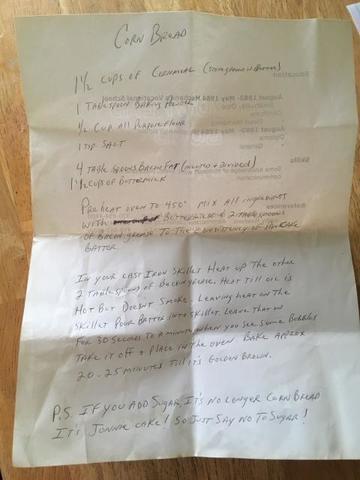 Corn Bread
1½ cups of Cornmeal (Stone ground is Better)
1 Tablespoon Baking Powder
½ Cup All Purpose Flour
1 tsp Salt
4 Tablespoons Bacon Fat (melted + Divided)
1½ cups of Buttermilk
Pre heat oven to 450° Mix all ingredients
with Buttermilk & 2 tablespoons
of Bacon grease to the consistency of Pancake
Batter
In your cast Iron Skillet Heat up the other
2 Tablespoons of Bacon grease. Heat till oil is
Hot But Doesn't Smoke. Leaving heat on the
skillet Pour Batter into skillet Leave that on
For 30 seconds to a minute when you see some Bubbles
Take it off & Place in the oven Bake Approx
20-25 minutes Till it's Golden Brown.
P.S. If you Add Sugar It's no longer Corn Bread
It's Jonnie cake! So Just Say No To Sugar!